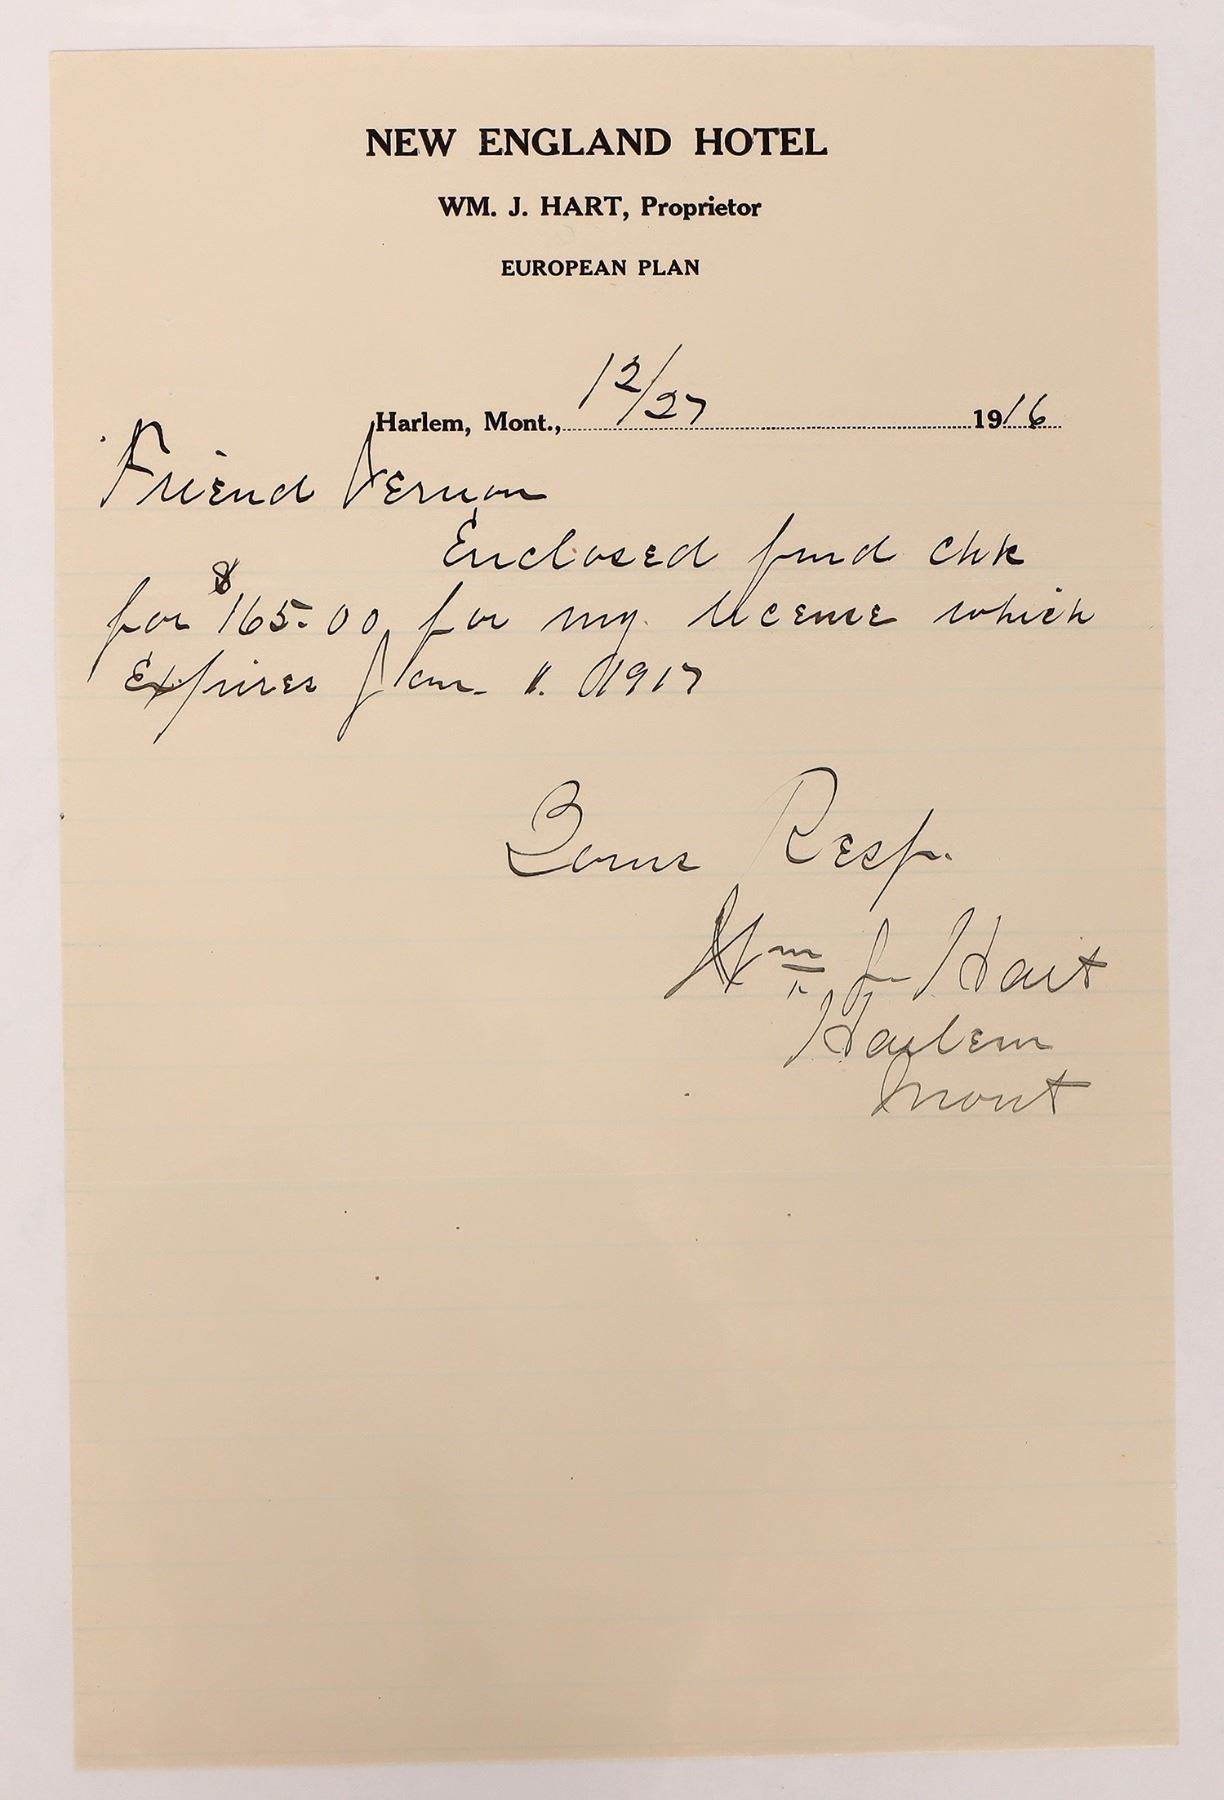 NEW ENGLAND HOTEL
WM. J. HART, Proprietor
EUROPEAN PLAN
Harlem, Mont., 12/27 1916
Friend Vernon
Enclosed find chk
for $165.00 for my license which
Expires Jan. 1. 1917
Yours Resp.
Wm J Hart
Harlem
Mont